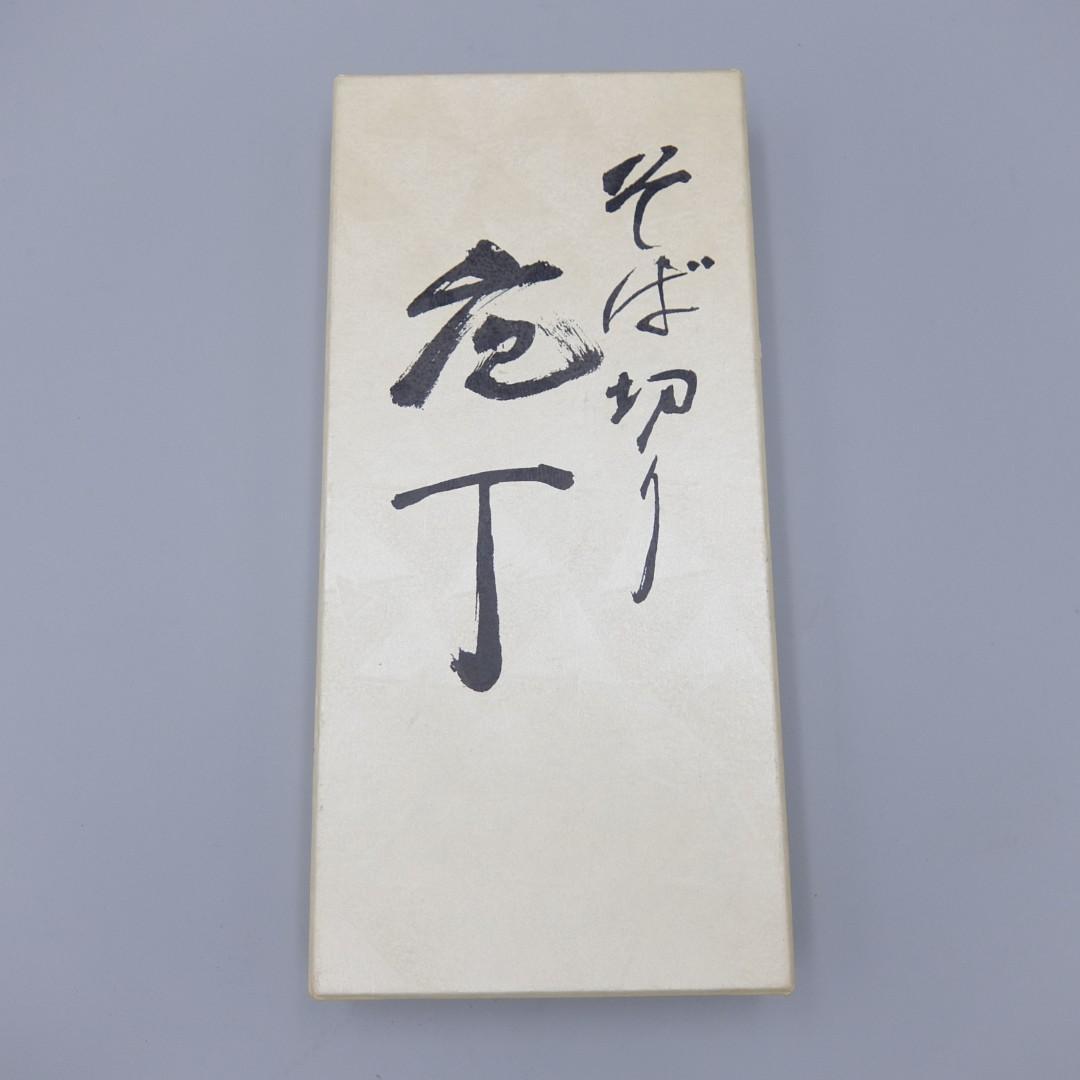 そば切り
庖丁